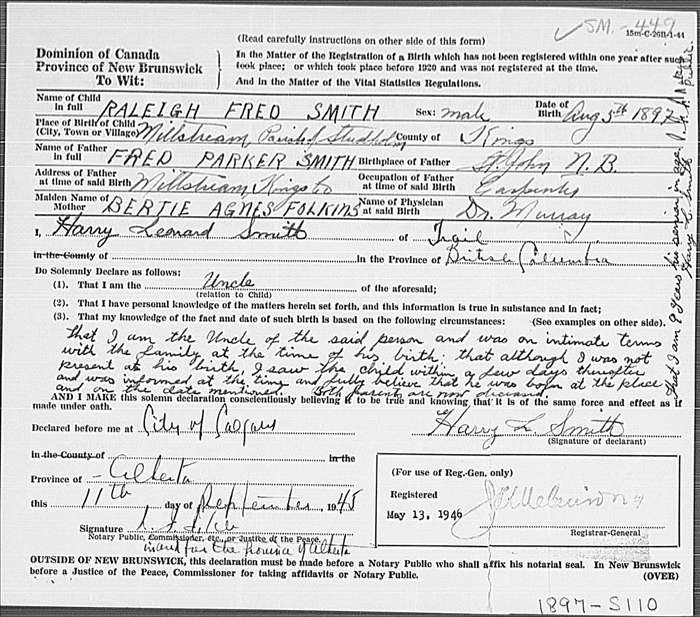 SM. - 449
15m-C-26B-1-44
(Read carefully instructions on other side of this form)
Dominion of Canada
Province of New Brunswick
To Wit:
In the Matter of the Registration of a Birth which has not been registered within one year after such
took place; or which took place before 1920 and was not registered at the time.
And in the Matter of the Vital Statistics Regulations.
Name of Child in full RALEIGH FRED SMITH Sex: male Date of Birth Aug 5th 1897
Place of Birth of Child (City, Town or Village) Millstream Parish of Studholm County of Kings
Name of Father in full FRED PARKER SMITH Birthplace of Father St. John N.B.
Address of Father at time of said Birth Millstream Kings Co Occupation of Father at time of said Birth Carpenter
Maiden Name of Mother BERTIE AGNES FOLKINS Name of Physician at said Birth Dr. Murray
I, Harry Leonard Smith of Trail
in the County of in the Province of British Columbia
Do Solemnly Declare as follows:
(1). That I am the Uncle of the aforesaid;
(relation to Child)
(2). That I have personal knowledge of the matters herein set forth, and this information is true in substance and in fact;
(3). That my knowledge of the fact and date of such birth is based on the following circumstances: (See examples on other side).
that I am the Uncle of the said person and was on intimate terms
with the family at the time of his birth; that although I was not
present at his birth, I saw the child within a few days thereafter
and was informed at the time and fully believe that he was born at the place
and on the date mentioned. Both parents are now deceased.
AND I MAKE this solemn declaration conscientiously believing it to be true and knowing that it is of the same force and effect as if
made under oath.
Declared before me at City of Calgary
Harry L. Smith
(Signature of declarant)
in the County of in the
Province of - Alberta
this 11th day of September, 1945
Signature
Notary Public, Commissioner, etc., or Justice of the Peace.
in and for the province of Alberta
(For use of Reg.-Gen. only)
Registered
May 13, 1946
Registrar-General
OUTSIDE OF NEW BRUNSWICK, this declaration must be made before a Notary Public who shall affix his notarial seal. In New Brunswick
before a Justice of the Peace, Commissioner for taking affidavits or Notary Public. (OVER)
1897-S110
that I am 8 years his senior in age.
Harry L. Smith